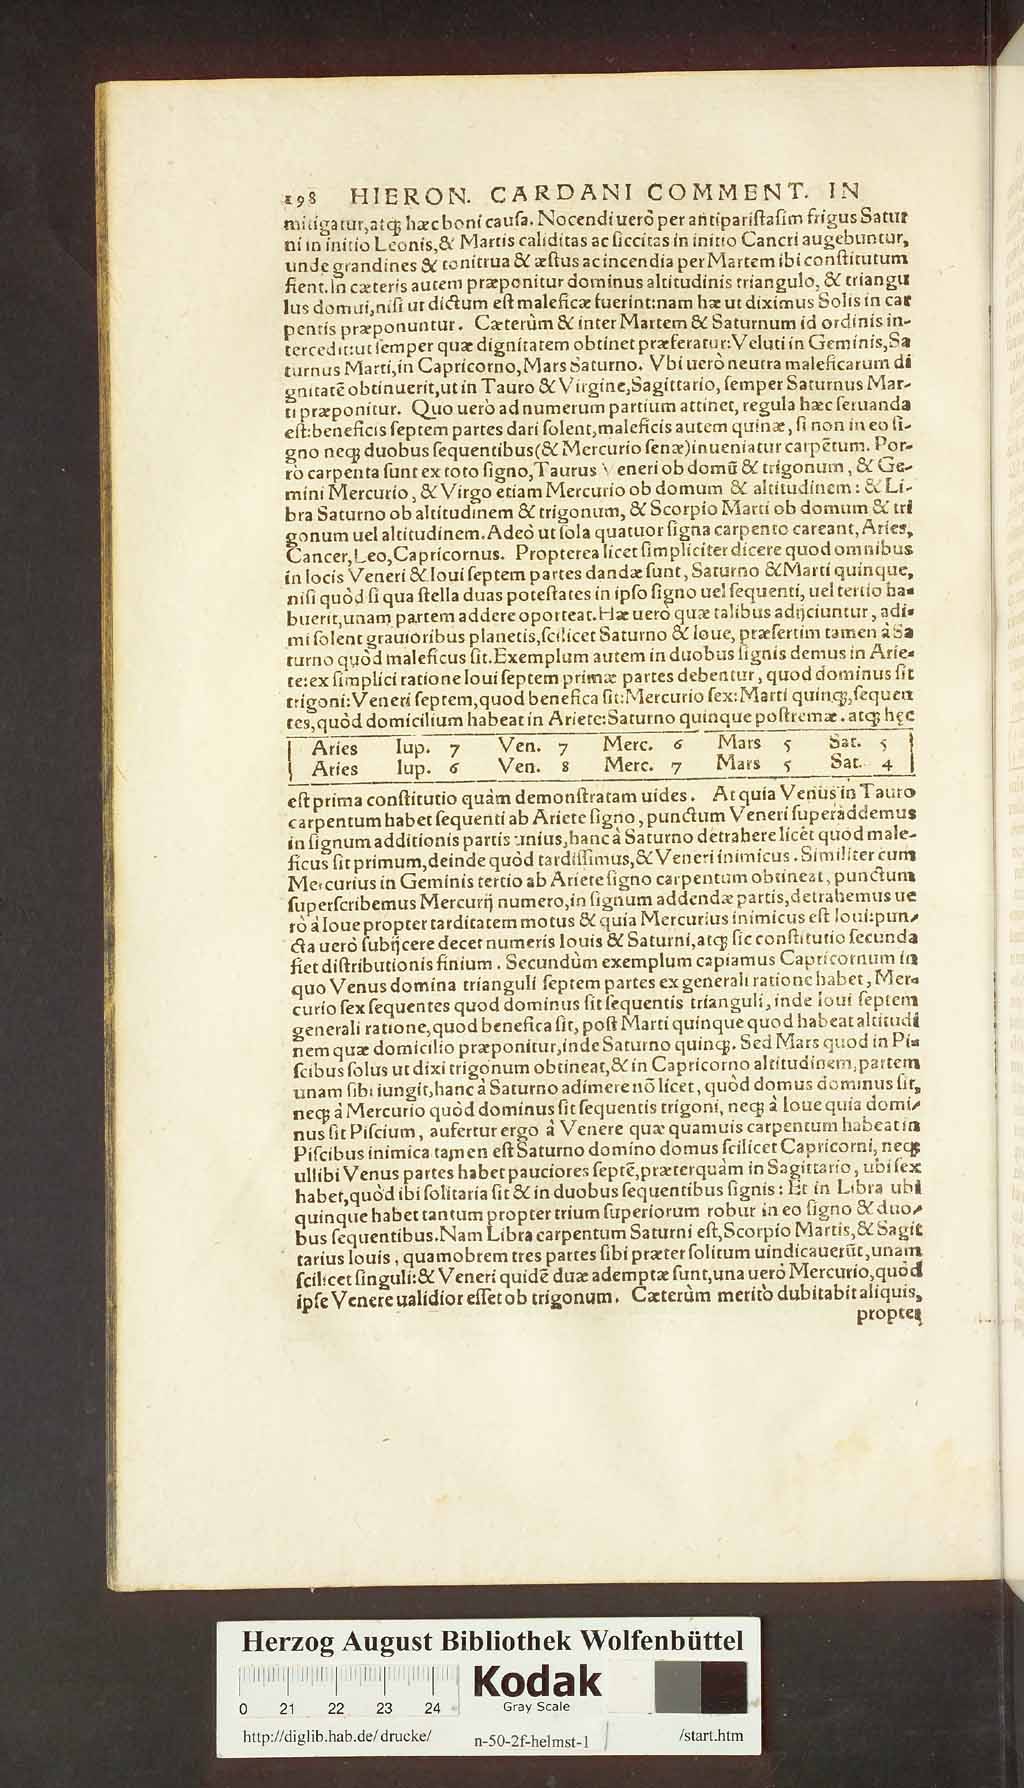 298 HIERON. CARDANI COMMENT. IN
mitigatur, atq; hæc boni causa. Nocendi uerò per antiparistasim frigus Satur
ni in initio Leonis, & Martis caliditas ac siccitas in initio Cancri augebuntur,
unde grandines & tonitrua & æstus ac incendia per Martem ibi constitutum
fient. In cæteris autem præponitur dominus altitudinis triangulo, & triangu
lus domui, nisi ut dictum est maleficæ fuerint: nam hæ ut diximus Solis in car
pentis præponuntur. Cæterùm & inter Martem & Saturnum id ordinis in-
tercedit: ut semper quæ dignitatem obtinet præferatur: Veluti in Geminis, Sa
turnus Marti, in Capricorno, Mars Saturno. Vbi uerò neutra maleficarum di
gnitatē obtinuerit, ut in Tauro & Virgine, Sagittario, semper Saturnus Mar-
ti præponitur. Quo uerò ad numerum partium attinet, regula hæc seruanda
est: beneficis septem partes dari solent, maleficis autem quinæ, si non in eo si-
gno neq; duobus sequentibus (& Mercurio senæ) inueniatur carpētum. Por-
rò carpenta sunt ex toto signo, Taurus Veneri ob domū & trigonum, & Ge-
mini Mercurio, & Virgo etiam Mercurio ob domum & altitudinem: & Li-
bra Saturno ob altitudinem & trigonum, & Scorpio Marti ob domum & tri
gonum uel altitudinem. Adeò ut sola quatuor signa carpento careant, Aries,
Cancer, Leo, Capricornus. Propterea licet simpliciter dicere quod omnibus
in locis Veneri & Ioui septem partes dandæ sunt, Saturno & Marti quinque,
nisi quòd si qua stella duas potestates in ipso signo uel sequenti, uel tertio ha-
buerit, unam partem addere oporteat. Hæ uerò quæ talibus adijciuntur, adi-
mi solent grauioribus planetis, scilicet Saturno & Ioue, præsertim tamen à Sa
turno quòd maleficus sit. Exemplum autem in duobus signis demus in Arie-
te: ex simplici ratione Ioui septem primæ partes debentur, quod dominus sit
trigoni: Veneri septem, quod benefica sit: Mercurio sex: Marti quinq;, sequen
tes, quòd domicilium habeat in Ariete: Saturno quinque postremæ. atq; hęc
Aries Iup. 7 Ven. 7 Merc. 6 Mars 5 Sat. 5
Aries Iup. 6 Ven. 8 Merc. 7 Mars 5 Sat. 4
est prima constitutio quàm demonstratam uides. At quia Venus in Tauro
carpentum habet sequenti ab Ariete signo, punctum Veneri superaddemus
in signum additionis partis unius, hanc à Saturno detrahere licet quòd male-
ficus sit primum, deinde quòd tardissimus, & Veneri inimicus. Similiter cum
Mercurius in Geminis tertio ab Ariete signo carpentum obtineat, punctum
superscribemus Mercurij numero, in signum addendæ partis, detrahemus ue
rò à Ioue propter tarditatem motus & quia Mercurius inimicus est Ioui: pun-
cta uerò subijcere decet numeris Iouis & Saturni, atq; sic constitutio secunda
fiet distributionis finium. Secundùm exemplum capiamus Capricornum in
quo Venus domina trianguli septem partes ex generali ratione habet, Mer-
curio sex sequentes quod dominus sit sequentis trianguli, inde Ioui septem
generali ratione, quod benefica sit, post Marti quinque quod habeat altitudi
nem quæ domicilio præponitur, inde Saturno quinq;. Sed Mars quod in Pi-
scibus solus ut dixi trigonum obtineat, & in Capricorno altitudinem, partem
unam sibi iungit, hanc à Saturno adimere nō licet, quòd domus dominus sit,
neq; à Mercurio quòd dominus sit sequentis trigoni, neq; à Ioue quia domi-
nus sit Piscium, aufertur ergo à Venere quæ quamuis carpentum habeat in
Piscibus inimica tamen est Saturno domino domus scilicet Capricorni, neq;
ullibi Venus partes habet pauciores septē, præterquàm in Sagittario, ubi sex
habet, quòd ibi solitaria sit & in duobus sequentibus signis: Et in Libra ubi
quinque habet tantum propter trium superiorum robur in eo signo & duo-
bus sequentibus. Nam Libra carpentum Saturni est, Scorpio Martis, & Sagit
tarius Iouis, quamobrem tres partes sibi præter solitum uindicauerūt, unam
scilicet singuli: & Veneri quidē duæ ademptæ sunt, una uerò Mercurio, quòd
ipse Venere ualidior esset ob trigonum. Cæterùm meritò dubitabit aliquis,
propter
Herzog August Bibliothek Wolfenbüttel
Kodak
Gray Scale
0 21 22 23 24
http://diglib.hab.de/drucke/ n-50-2f-helmst-1 /start.htm